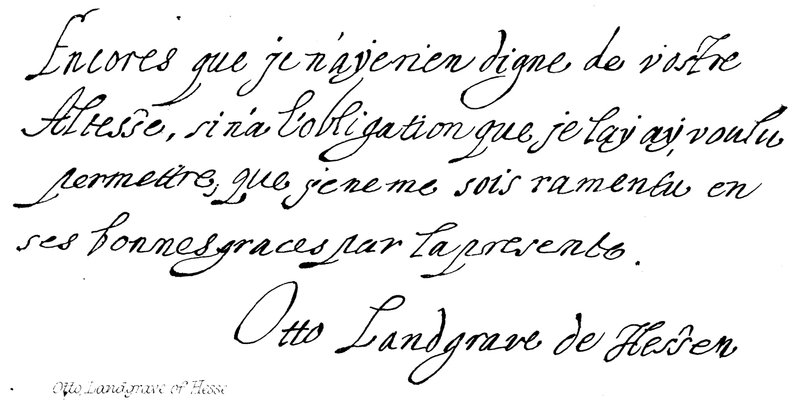 Encores que je n'aye rien digne de vostre
Altesse, si n'a l'obligation que je lay ay, voulu
permettre, que je ne me sois ramentu en
ses bonnes graces par la presente.
Otto Landgrave de Hessen
Otto, Landgrave of Hesse